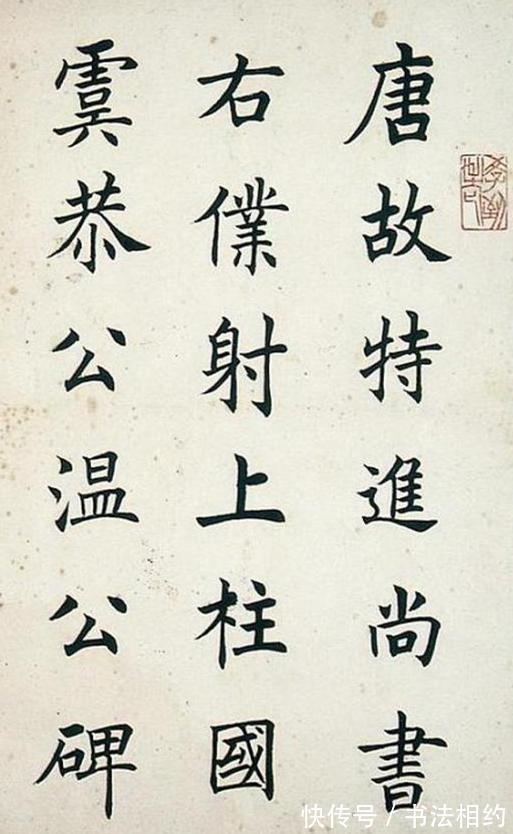 唐故特進尚書
右僕射上柱國
虞恭公温公碑
快传号/书法相约